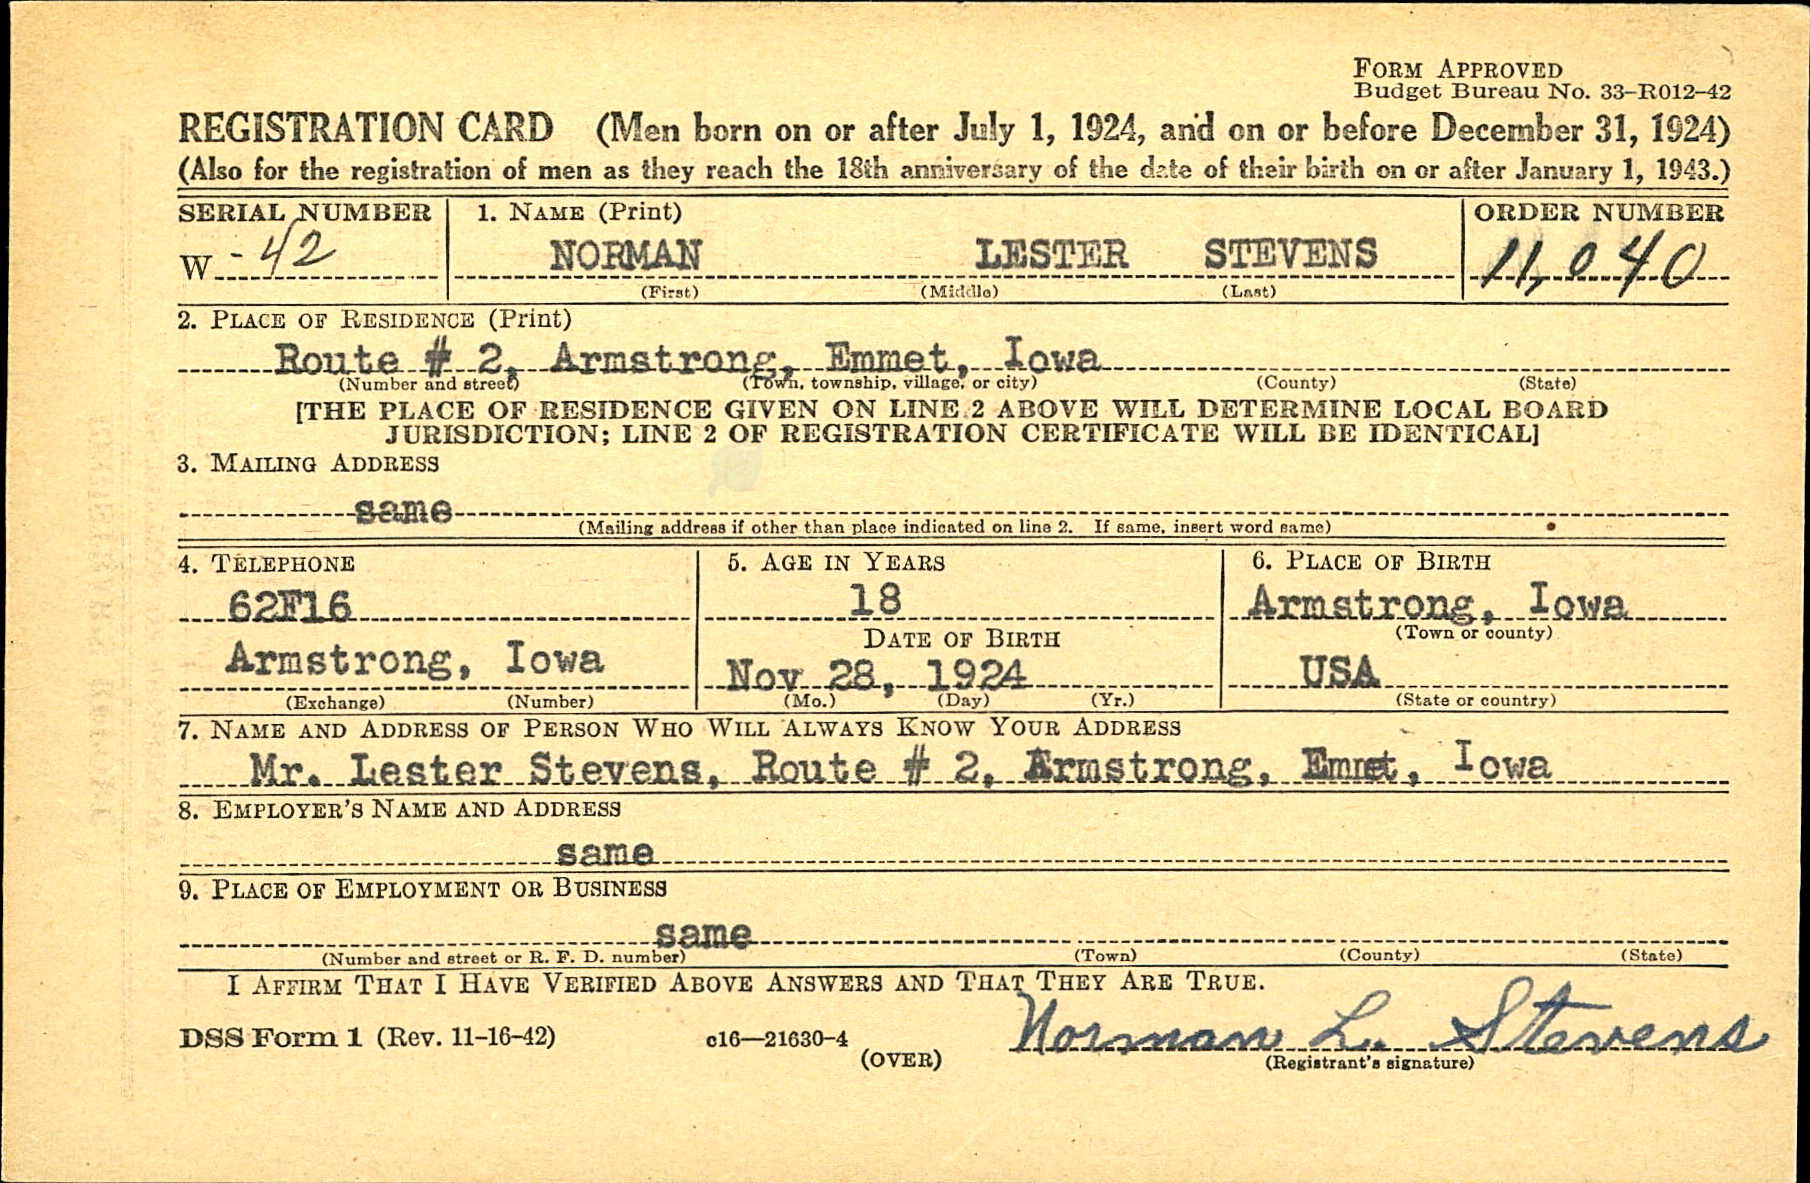 FORM APPROVED
Budget Bureau No. 33-R012-42
REGISTRATION CARD (Men born on or after July 1, 1924, and on or before December 31, 1924)
(Also for the registration of men as they reach the 18th anniversary of the date of their birth on or after January 1, 1943.)
SERIAL NUMBER 1. NAME (Print) ORDER NUMBER
W -42 NORMAN LESTER STEVENS 11,040
(First) (Middle) (Last)
2. PLACE OF RESIDENCE (Print)
Route # 2, Armstrong, Emmet, Iowa
(Number and street) (Town, township, village, or city) (County) (State)
[THE PLACE OF RESIDENCE GIVEN ON LINE 2 ABOVE WILL DETERMINE LOCAL BOARD
JURISDICTION; LINE 2 OF REGISTRATION CERTIFICATE WILL BE IDENTICAL]
3. MAILING ADDRESS
same
(Mailing address if other than place indicated on line 2. If same, insert word same)
4. TELEPHONE 5. AGE IN YEARS 6. PLACE OF BIRTH
62F16 18 Armstrong, Iowa
DATE OF BIRTH (Town or county)
Armstrong, Iowa Nov 28, 1924 USA
(Exchange) (Number) (Mo.) (Day) (Yr.) (State or country)
7. NAME AND ADDRESS OF PERSON WHO WILL ALWAYS KNOW YOUR ADDRESS
Mr. Lester Stevens, Route # 2, Armstrong, Emmet, Iowa
8. EMPLOYER'S NAME AND ADDRESS
same
9. PLACE OF EMPLOYMENT OR BUSINESS
same
(Number and street or R. F. D. number) (Town) (County) (State)
I AFFIRM THAT I HAVE VERIFIED ABOVE ANSWERS AND THAT THEY ARE TRUE.
DSS Form 1 (Rev. 11-16-42) c16—21630-4 Norman L. Stevens
(OVER) (Registrant's signature)